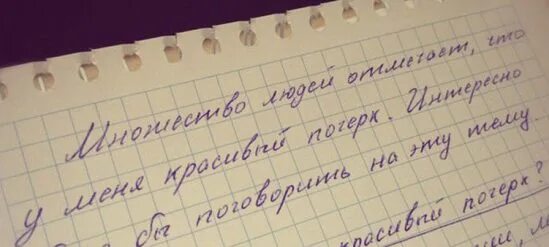 Множество людей отмечает, что
у меня красивый почерк. Интересно
бы поговорить на эту тему.
красивый почерк?